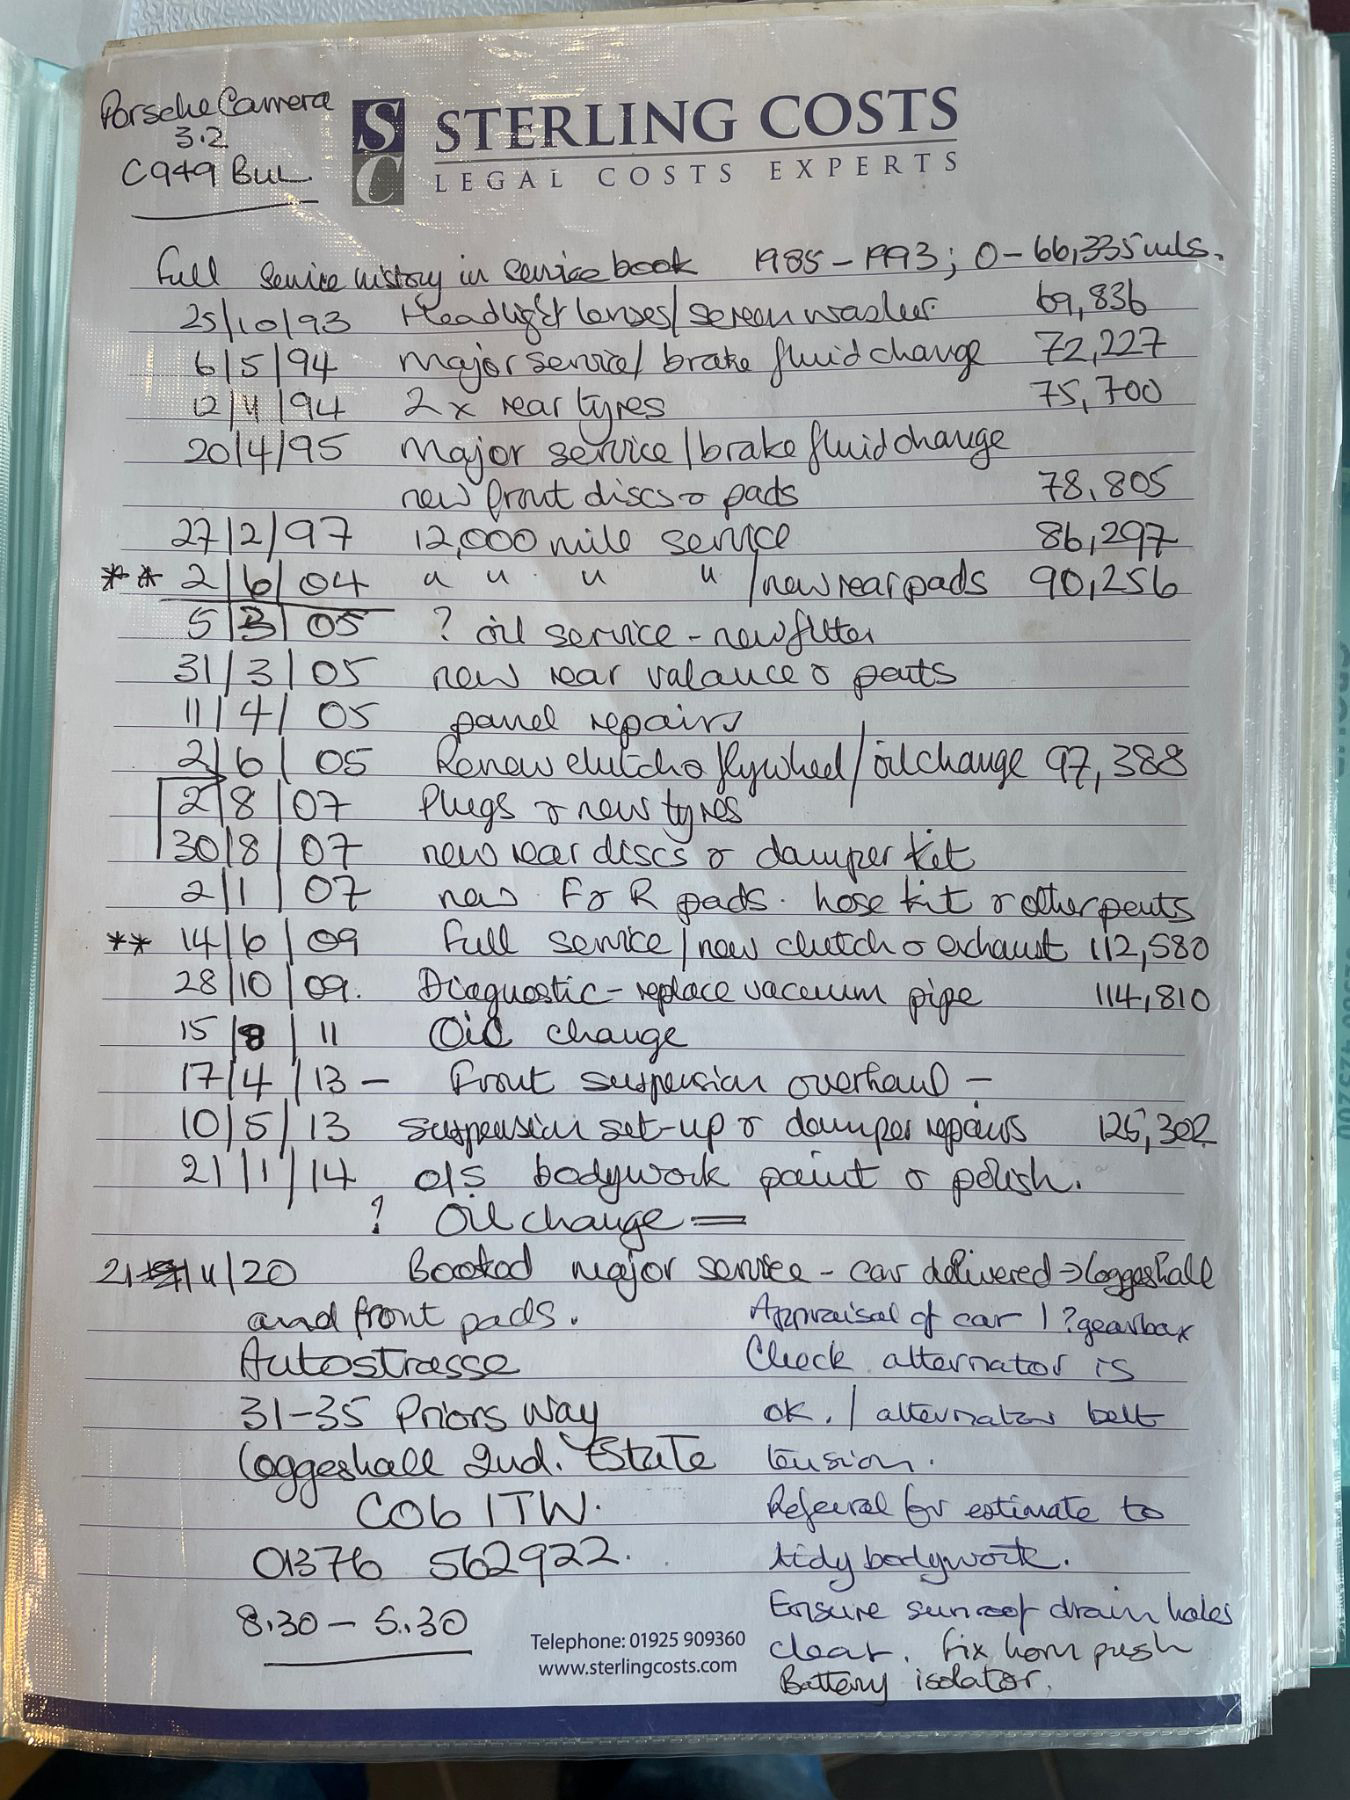 Porsche Carrera
3.2
C949 BUL
SC STERLING COSTS
LEGAL COSTS EXPERTS
Full service history in service book 1985 – 1993; 0 – 66,335 mls.
25/10/93 Headlight lenses/screen washer. 69,836
6/5/94 Major service/ brake fluid change 72,227
12/4/94 2 x rear tyres 75,700
20/4/95 Major service/brake fluid change
new front discs & pads 78,805
27/2/97 12,000 mile service 86,297
** 2/6/04 " " " " /new rear pads 90,256
5/3/05 ? oil service - new filter
31/3/05 new rear valance & parts
11/4/05 panel repairs
2/6/05 Renew clutch & flywheel/oil change 97,388
2/8/07 Plugs & new tyres
30/8/07 new rear discs & damper kit
2/1/07 new F & R pads. hose kit & other parts
** 14/6/09 Full service/new clutch & exhaust 112,580
28/10/09. Diagnostic – replace vacuum pipe 114,810
15/8/11 Oil change
17/4/13 – Front suspension overhaul –
10/5/13 suspension set-up & damper repairs 125,302
21/1/14 o/s bodywork paint & polish.
? Oil change =
21 /4/20 Booked major service – car delivered → Coggeshall
and front pads.
Autostrasse
31-35 Priors Way
Coggeshall Ind. Estate
CO6 1TW.
01376 562922.
8.30 – 5.30
Appraisal of car / ?gearbox
Check alternator is
ok. / alternator belt
tension.
Referral for estimate to
tidy bodywork.
Ensure sunroof drain holes
clear. Fix horn push
Battery isolator.
Telephone: 01925 909360
www.sterlingcosts.com